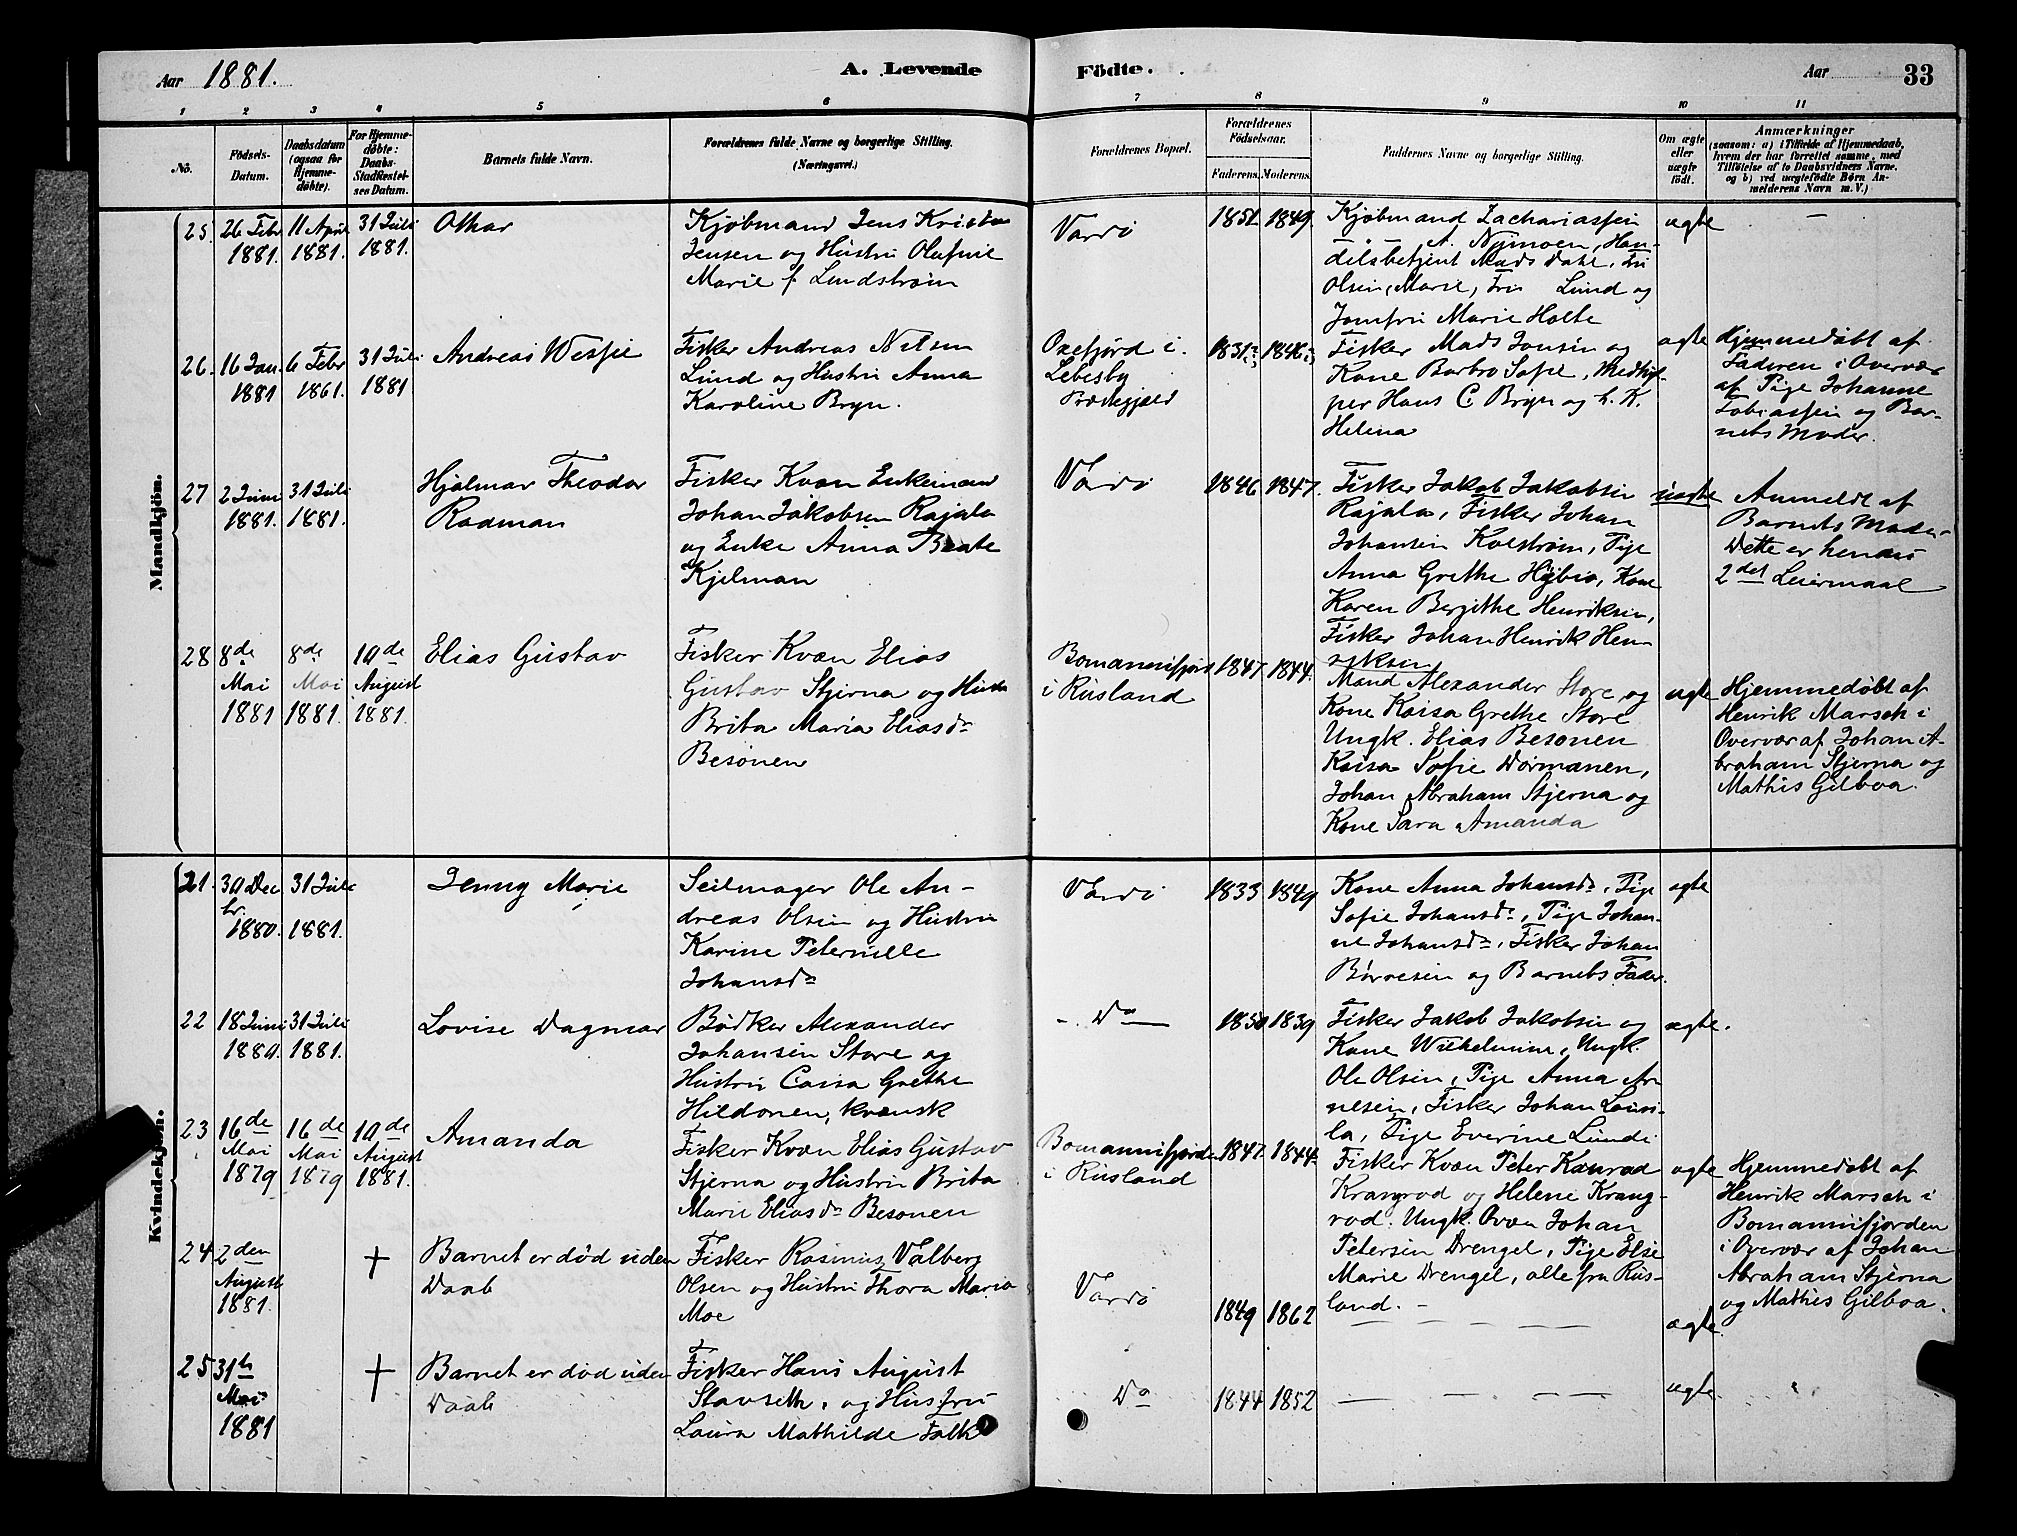 Aar 1881.
A. Levende
Födte.
Aar
33
1
2
3
4
5
6
7
8
9
10
11
No.
Födsels-
Datum.
Daabsdatum
(ogsaa for
Hjemme-
döbte).
For Hjemme-
döbte:
Daabs-
Stadfæstel-
ses Datum.
Barnets fulde Navn.
Forældrenes fulde Navne og borgerlige Stilling.
(Næringsvei.)
Forældrenes Bopæl.
Forældrenes
Födselsaar.
Faderens.
Moderens.
Faddernes Navne og borgerlige Stilling.
Om ægte
eller
uægte
födt.
Anmærkninger
(saasom: a) i Tilfælde af Hjemmedaab,
hvem der har forrettet samme, med
Tilföielse af to Daabsvidners Navne,
og b) ved uægtefödte Börn An-
melderens Navn m. V.)
Mandkjön.
25.
26 Febr
1881.
11 April
1881.
31 Juli
1881.
Othar
Kjøbmand Jens Kristen
Jensen og Hustru Olufine
Marie f. Lundstrøm
Vardø
1851.
1849.
Kjøbmand Zachariassen
A. Nymoen, Han-
delsbetjent Mads Dahl, Fru
Olsen, Marie, Fru Lund og
Jomfru Marie Holte
ægte
—
26.
16 Jan.
1881
6 Febr
1861.
31 Juli
1881
Andreas Wessel
Fisker Andreas Nilsen
Lund og Hustru Anna
Karoline Bryn.
Oxefjord i
Lebesby
Præstegjæld
1831
1846
Fisker Mads Jonsen og
Kone Barbro Sofie, Medhjel-
per Hans C Bryn og h. K.
Helena
ægte
Hjemmedøbt af
Faderen i Overvær
af Pige Johanne
Tobiassen og Bar-
nets Moder.
27
2 Juni
1881.
31 Juli
1881.
Hjalmar Theodor
Radman
Fisker Kvæn Enkemand
Johan Jakobsen Rajala
og Enke Anna Beate
Kjelman
Vardø
1846
1847.
Fisker Jakob Jakobsen
Rajala, Fisker Johan
Johansen Kolstrøm, Pige
Anna Grethe
Kone
Karen Bergithe Henriksen,
Fisker Johan Henrik Hen-
riksen
uægte
Anmeldt af
Barnets Moder
Dette er hendes
2det Leiermaal
28
8de
Mai
1881
8de
Mai
1881.
10de
August
1881.
Elias Gustav
Fisker Kvæn Elias
Gustav Stjerna og Hustru
Brita Maria Eliasdr
Besonen
Bomannifjord
i Rusland
1847
1844.
Mand Alexander Store og
Kone Kaisa Grethe Store
Ungk. Elias Besonen
Kaisa Sofie Dormanen,
Johan Abraham Stjerna og
Kone Sara Amanda
ægte
Hjemmedøbt af
Henrik Marsch i
Overvær af Johan A-
braham Stjerna og
Mathis Gilboa.
Kvindekjön.
21.
30 Dec
br.
1880.
31 Juli
1881.
Jenny Marie
Seilmager Ole An-
dreas Olsen og Hustru
Karine Peternille
Johansdr
Vardø
1833
1849
Kone Anna Johansdr, Pige
Sofie Johansdr, Pige Johan-
ne Johansdr, Fisker Johan
Børresen og Barnets Fader.
ægte
22
18 Juni
1880.
31 Juli
1881.
Lovise Dagmar
Bødker Alexander
Johansen Store og
Hustru Caisa Grethe
Hildonen, kvænsk
Do
1850
1839
Fisker Jakob Jakobsen og
Kone Wilhelmine, Ungk.
Ole Olsen, Pige Anna Ar-
nesen, Fisker Johan Lauri-
la, Pige Everine Lundi
ægte.
23
16de
Mai
1879
16de
Mai
1879
10de
August
1881.
Amanda
Fisker Kvæn Elias Gustav
Stjerna og Hustru Brita
Marie Eliasdr Besonen
Bomannifjorden
i Rusland
1847
1844
Fisker Kvæn Peter Kanrad
Krangrad og Helene Krang-
rad. Ungk. Kvæn Johan
Petersen Drengel, Pige Else
Marie Drengel, alle fra Rus-
land.
ægte
Hjemmedøbt af
Henrik Marsch i
Bomannifjorden
i Overvær af Johan
Abraham Stjerna
og Mathis Gilboa.
24
2den
August
1881.
+
Barnet er død uden
Daab
Fisker Rasmus Valberg
Olsen og Hustru Thora Maria
Moe
Vardø
1849
1862
— — — —
ægte
25
31te
Mai
1881
+
Barnet er død uden
Daab
Fisker Hans August
Stavseth, og Hustru
Laura Mathilde Falk
Do
1844
1852
— — — —
ægte